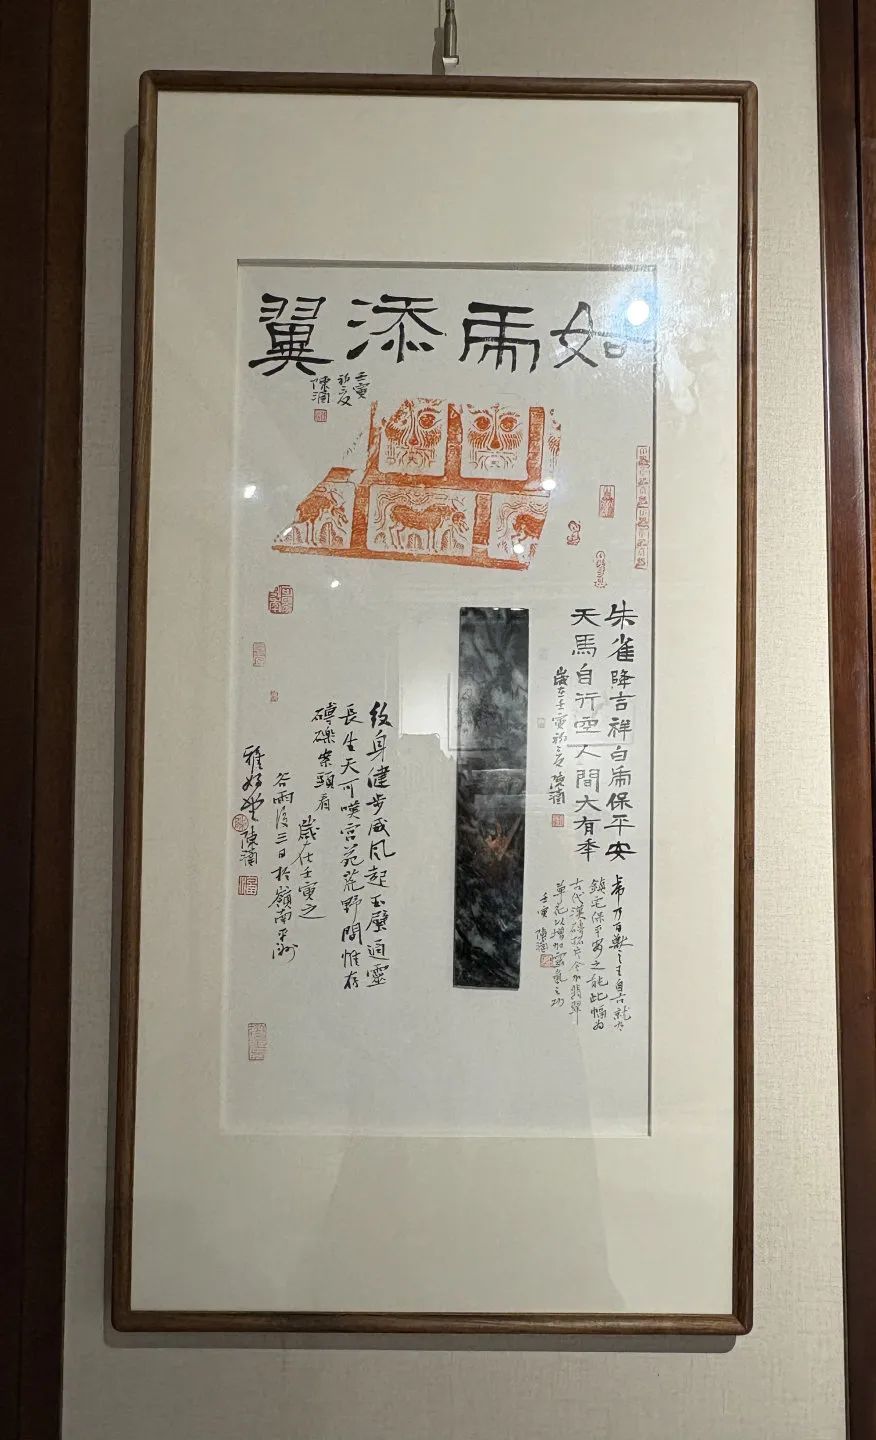 如虎添翼
壬寅
初夏
陳滿
朱雀降吉祥白虎保平安
天馬自行空人間大有年
歲在壬寅初夏陳滿
虎乃百獸之王自古就有
鎮宅保平安之能此幅為
古代漢磚拓片今加翡翠
草花以增加靈氣之功
壬寅 陳滿
紋身健步威風起玉壁通靈
長生天可嘆宮苑荒野間惟存
磚礫案頭看
歲在壬寅之
谷雨後三日於嶺南平洲
雅好堂陳滿